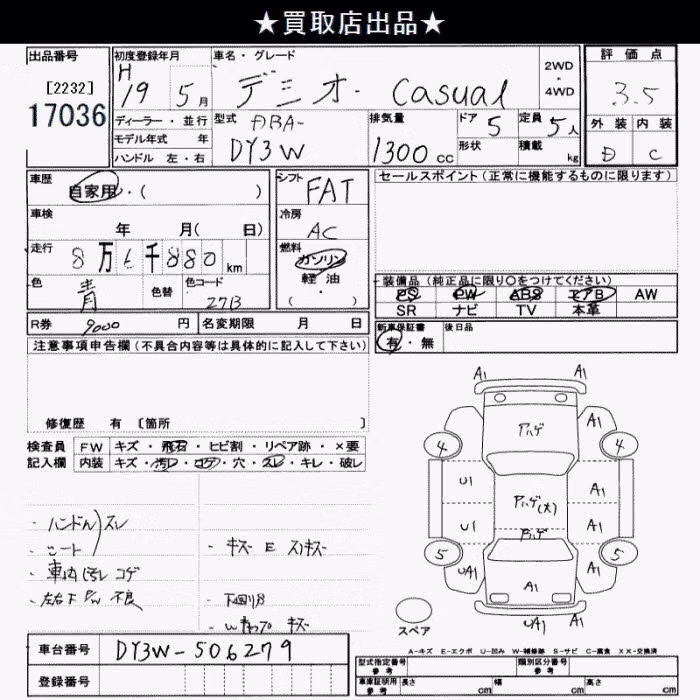 ★買取店出品★
出品番号
[2232]
17036
初度登録年月
H 19 5月
車名・グレード
デミオ・ Casual
2WD
・
4WD
評価点
3.5
外装 内装
D C
ディーラー・並行
モデル年式 年
ハンドル 左・右
型式
ABA-
DY3W
排気量
1300 cc
ドア 5
形状
定員 5人
積載 kg
車歴
自家用・( )
車検
年 月( 日)
走行
8万6千880 km
色
青
色替
色コード
27B
シフト
FAT
冷房
AC
燃料
ガソリン
軽油
( ・ )
セールスポイント(正常に機能するものに限ります)
装備品(純正品に限り○をつけてください)
PS PW ABS エアB AW
SR ナビ TV 本革
R券 9000 円 名変期限 月 日
新車保証書
有・無
後日品
注意事項申告欄(不具合内容等は具体的に記入して下さい)
修復歴 有 [箇所 ]
検査員
記入欄
FW キズ・飛石・ヒビ割・リペア跡・×要
内装 キズ・汚レ・コゲ・穴・スレ・キレ・破レ
・ハンドル スレ
・シート
・車内汚レ コゲ
・左右下 P/W 不良
・キズ E スリキズ
・下回りサ
キズ
A1 A1
アハゲ
A1
4 4
U1 A1
アハゲ(大)
U1 A1
アハゲ
5 5
UA1 A1 A1
UA1 A1
スペア
車台番号 DY3W-506279
登録番号
A-キズ E-エクボ U-凹み W-補修跡 S-サビ C-腐食 XX-交換済
型式指定番号 類別区分番号
参考 参考
車庫証明用 長さ 幅 高さ
参考 cm cm cm